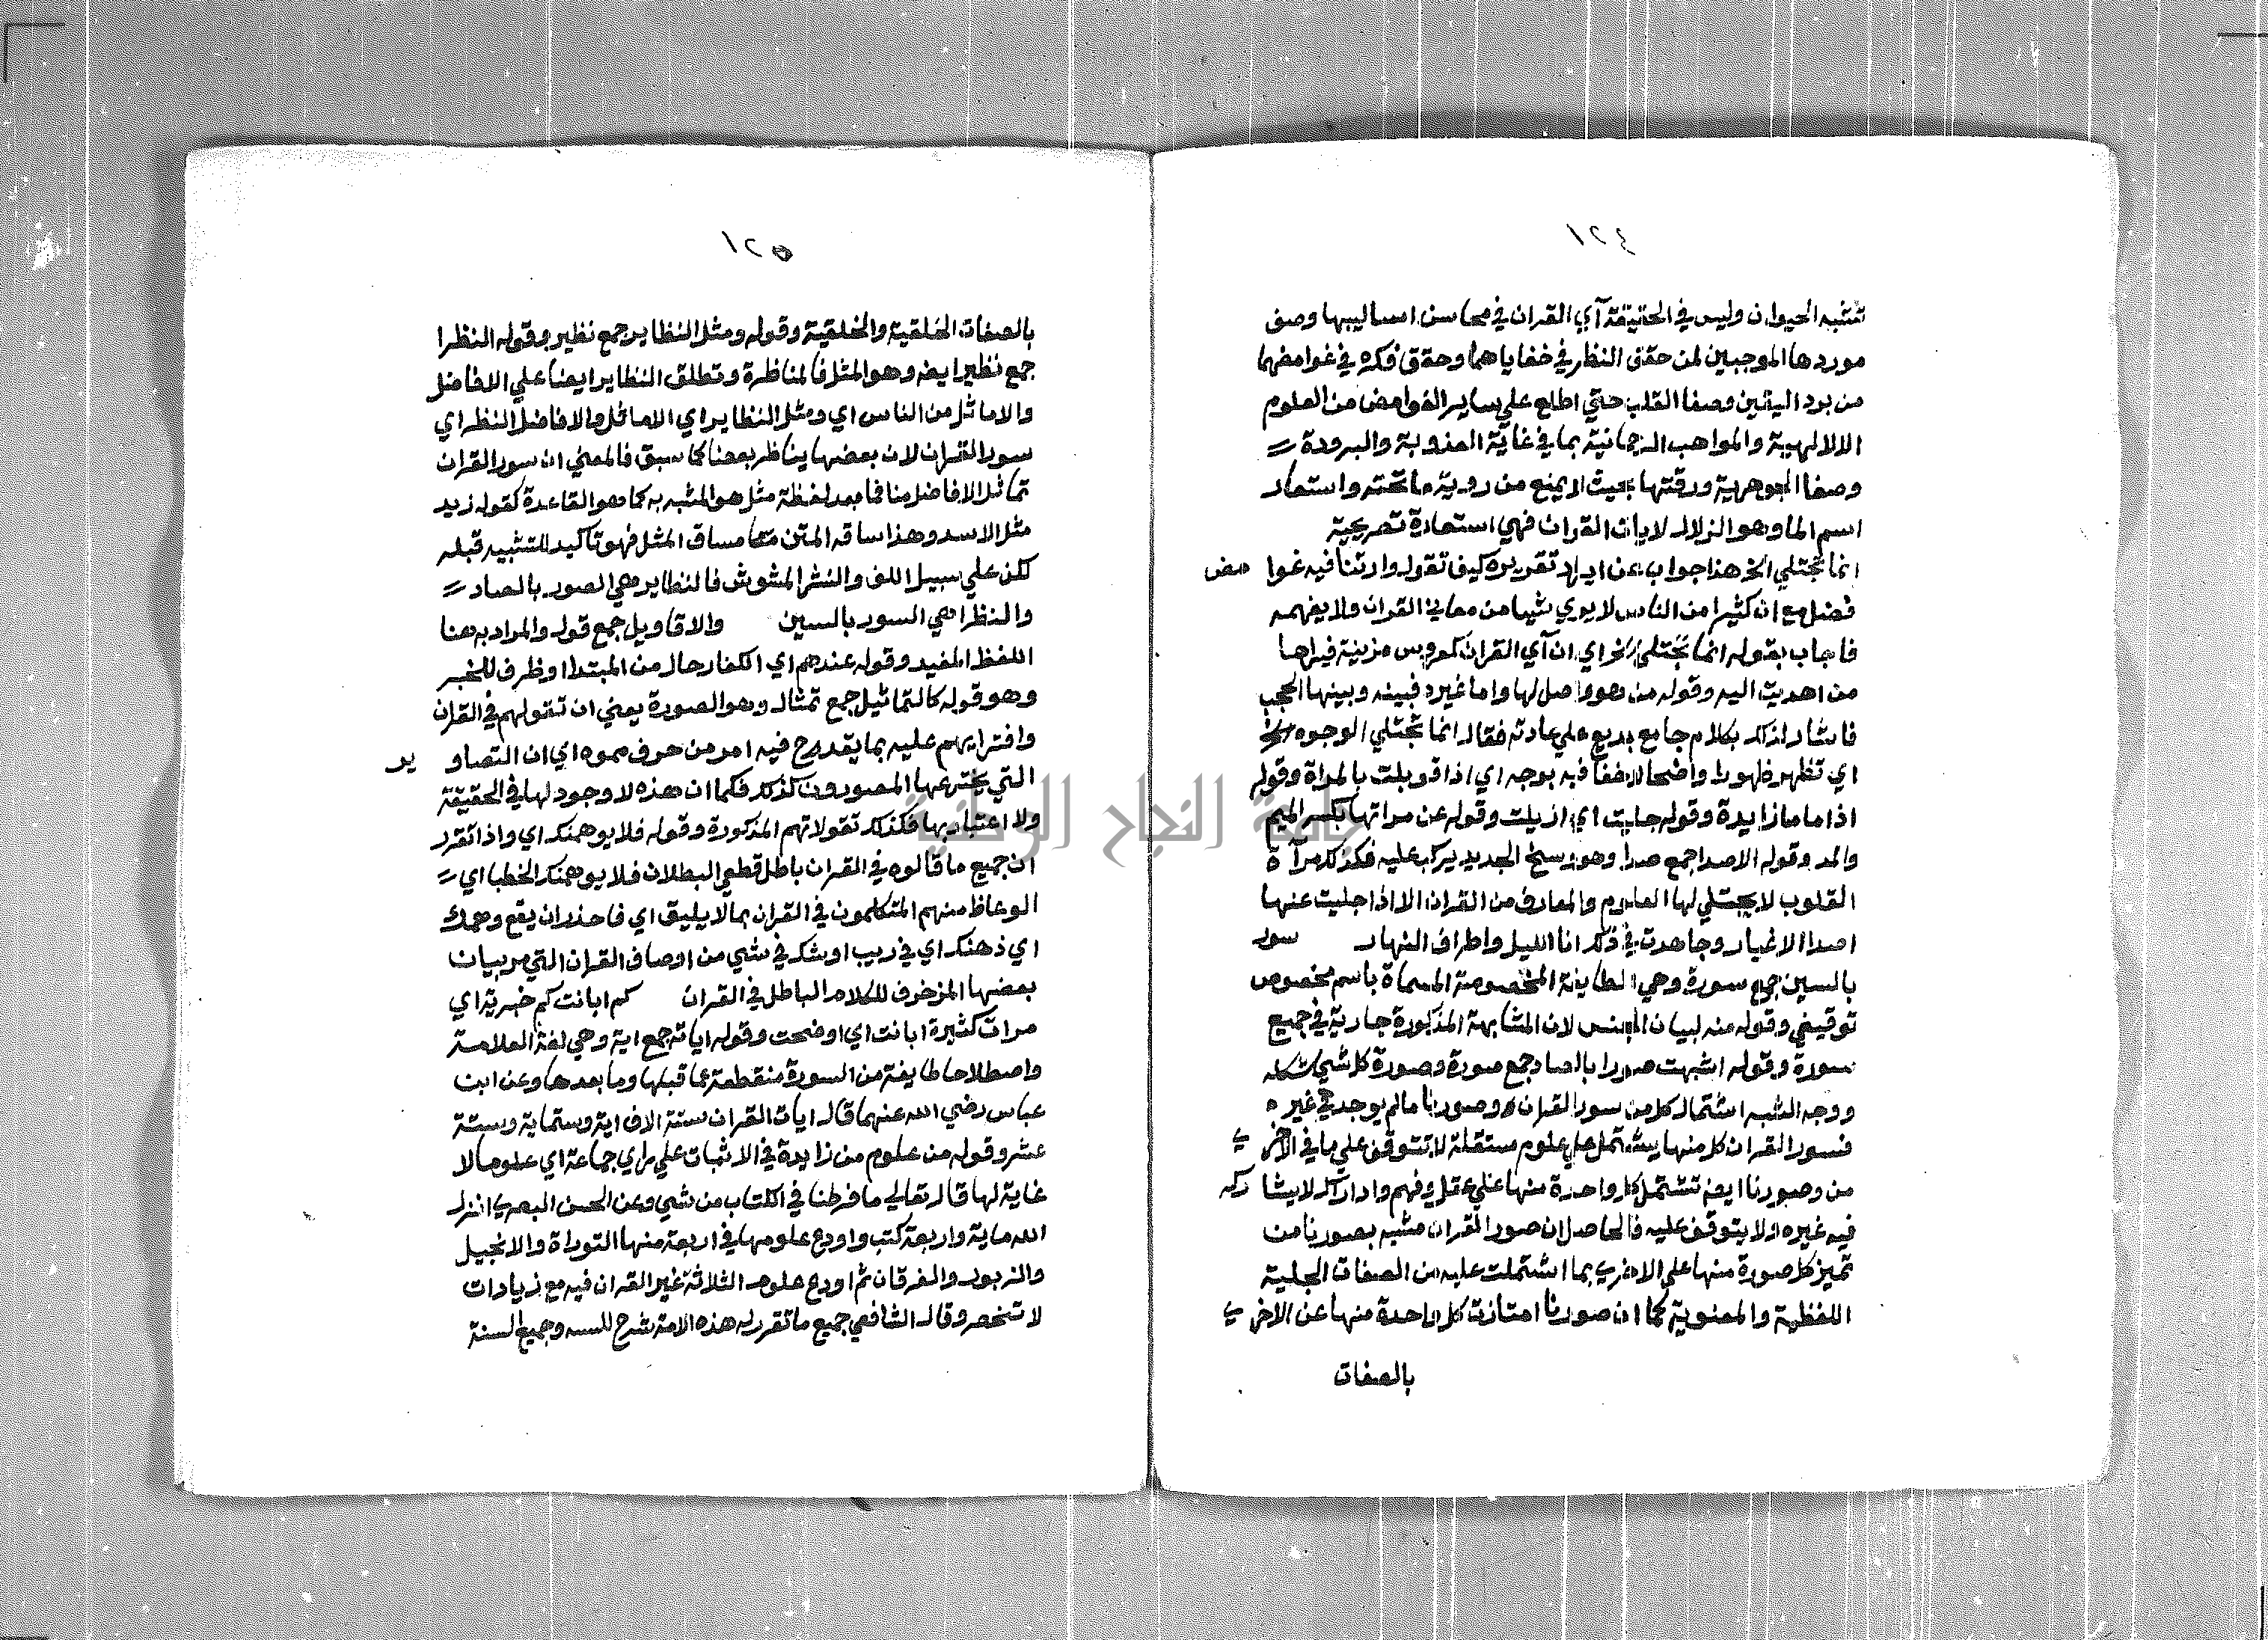 ١٢٤
تشبه الحيوان وليس في الحقيقة آي القران في محاسن اساليبها وصف
موردها الموجبين لمن حقق النظر في خفاياهما وحقق فكره في غوامضهما
من برد اليقين وصفا القلب حتي اطلع علي ساير الغوامض من العلوم
الالالهية والمواهب الرحمانية بما في غاية العذوبة والبرودة
وصفا الجوهرية ورقتها بحيث لا يمنع من روية ما تحته واستعار
اسم الما وهو الزلال لايات القران فهي استعارة تصريحية
انما تجتلي الخ هذا جواب عن ايراد تقريره كيف تقول وارتنا فيه غوامض
فضل مع ان كثيرا من الناس لا يري شيا من معاني القران ولا يفهمه
فاجاب بقوله انما تجتلي الخ اي ان آي القران كعروس مزينة فيراها
من اهديت اليه وقوله من هو واصل لها واما غيره فبينه وبينها الحجب
فاشار لذلك بكلام جامع بديع علي عادته فقال انما تجتلي الوجوه الخ
اي تظهر ظهورا واضحا لا خفا فيه بوجه اي اذا قوبلت بالمراة وقوله
اذا ما ما زايدة وقوله جليت اي ازيلت وقوله عن مراتها بكسر الميم
والمد وقوله الاصدا جمع صدا وهو وسخ الحديد يركب عليه فكذلك مرآة
القلوب لا يجتلي لها العلوم والمعارف من القران الا اذا جليت عنها
اصدا الاغيار وجاهدت في ذكر انا الليل واطراف النهار سور
بالسين جمع سورة وهي الطايفة المخصوصة المسماة باسم مخصوص
توقيفي وقوله منه لبيان الجنس لان المشابهة المذكورة جارية في جميع
سورة وقوله اشبهت صورا بالصاد جمع صورة وصورة كل شي شكله
ووجه الشبه اشتمال كل من سور القران وصورنا ما لم يوجد في غيره
فسور القران كل منها يشتمل علي علوم مستقلة لا تتوقف علي ما في الاخري
من وصورنا ايضه تشتمل كل واحدة منها علي عقل وفهم وادراك لا يشاركه
فيه غيره ولا يتوقف عليه فالحاصل ان صور القران مشبه بصورنا من
تميز كل صورة منها علي الاخري بما اشتملت عليه من الصفات الجلية
اللفظية والمعنوية كما ان صورنا امتازت كل واحدة منها عن الاخري
بالصفات
١٢٥
بالصفات الخلقية والخلقية وقوله ومثل النظاير جمع نظير وقوله النظرا
جمع نظير ايضه وهو المثل فالمناظرة وتطلق النظاير ايضا علي الافاضل
والاماثل من الناس اي ومثل النظاير اي الاماثل والافاضل النظر اي
سور القران لان بعضها يناظر بعضا كما سبق فالمعني ان سور القران
تماثل الافاضل منا فما بعد لفظة مثل هو المشبه به كما هو القاعدة كقوله زيد
مثل الاسد وهذا ساقه المتن مساق المثل فهو تاكيد للتشبيه قبله
لكن علي سبيل اللف والنشر المشوش فالنظاير هي الصور بالصاد
والنظرا هي السور بالسين والاقاويل جمع قول والمراد به هنا
اللفظ المفيد وقوله عندهم اي الكفار حال من المبتدا او ظرف للخبر
وهو قوله كالتماثيل جمع تمثال وهو الصورة يعني ان تقولهم في القران
وافترايهم عليه بما يقدح فيه امر من حرف مموه اي ان التصاوير
التي يخترعها المصورون كذلك فكما ان هذه لا وجود لها في الحقيقة
ولا اعتبار بها فكذلك تقولاتهم المذكورة وقوله فلا يوهمنك اي واذا تقرر
ان جميع ما قالوه في القران باطل قطعي البطلان فلا يوهمنك الخطبا اي
الوعاظ منهم المتكلمون في القران بما لا يليق اي فاحذر ان يقع وهمك
اي ذهنك اي في ريب او شك في شي من اوصاف القران التي مر بيان
بعضها المزخرف للكلام الباطل في القران كم ابانت كم خبرية اي
مرات كثيرة ابانت اي اوضحت وقوله اياته جمع اية وهي لغة العلامة
واصطلاحا طايفة من السورة منقطعة عما قبلها وما بعدها وعن ابن
عباس رضي الله عنهما قال ايات القران ستة الاف اية وستماية وستة
عشر وقوله من علوم من زايدة في الاثبات علي راي جماعة اي علوما لا
غاية لها قال تعالي ما فرطنا في الكتاب من شي وعن الحسن البصري انزل
الله ماية واربعة كتب واودع علومها في اربعة منها التوراة والانجيل
والزبور والفرقان ثم اودع علوم الثلاثة غير القران فيه مع زيادات
لا تنحصر وقال الشافعي جميع ما تقرره هذه الامة شرح للسنه وجميع السنة
جامعة النجاح الوطنية